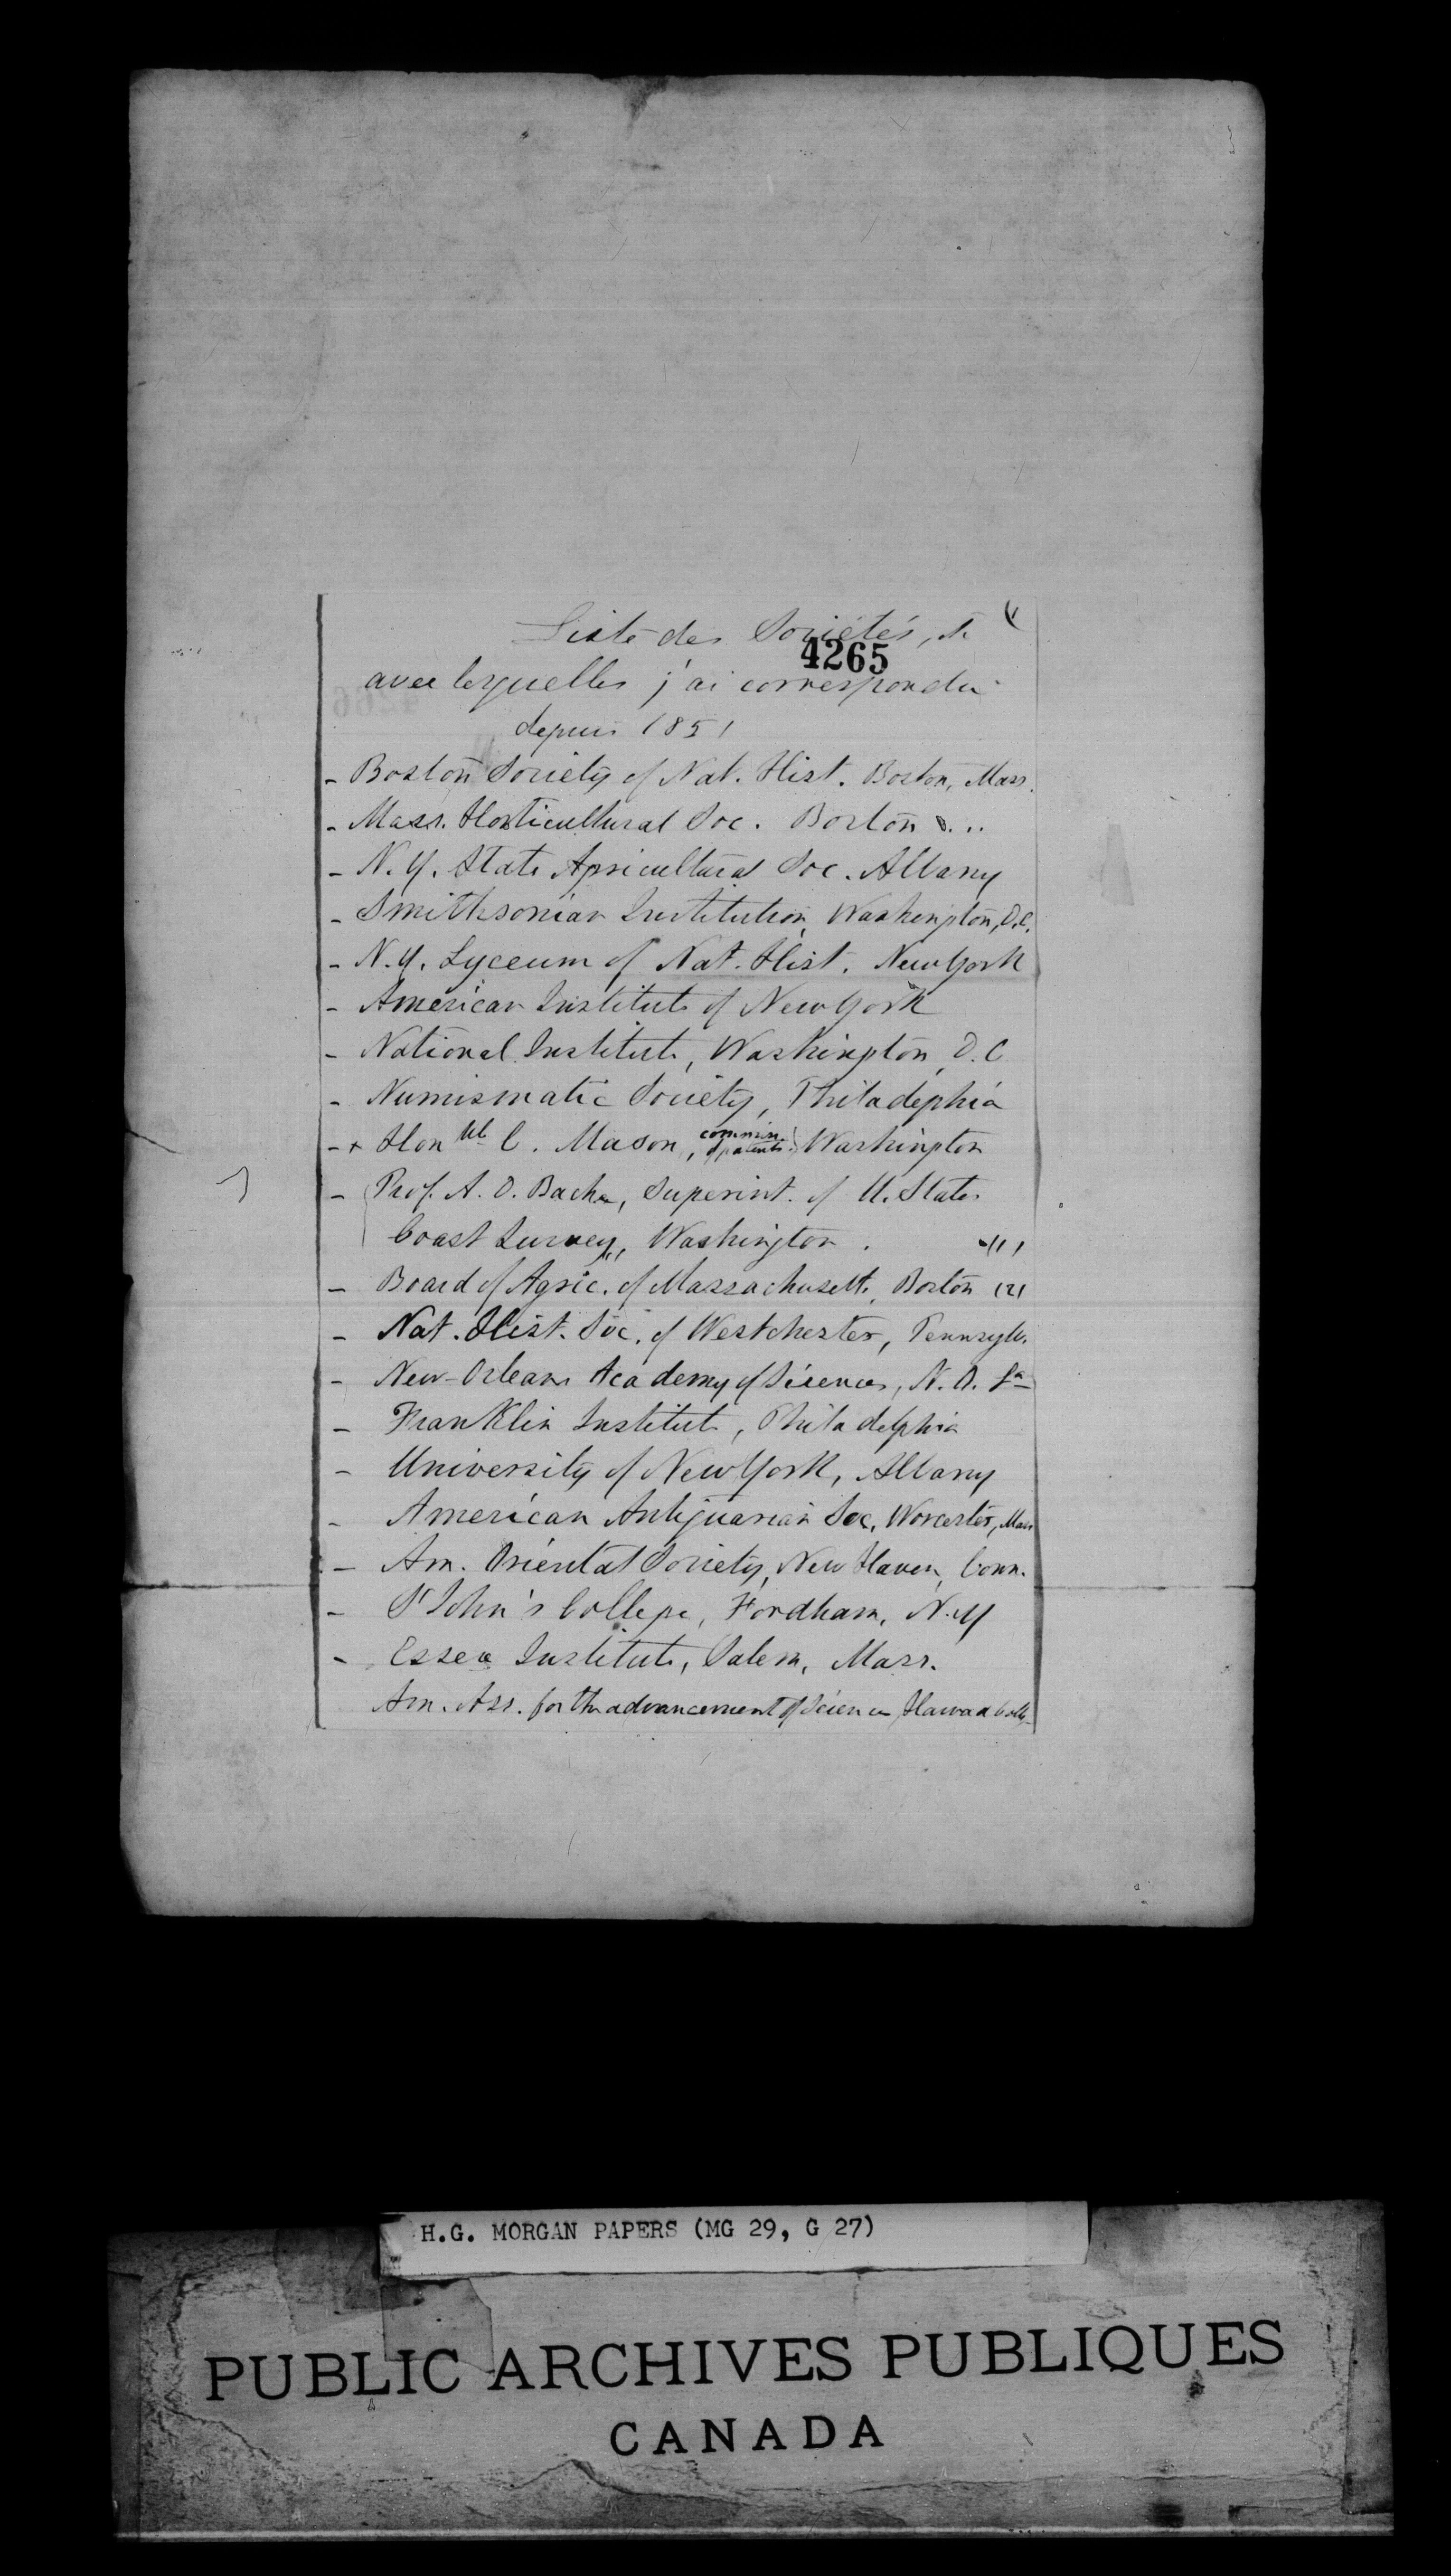 Liste des Sociétés, &c
4265
avec lesquelles j'ai correspondu
depuis 1851
- Boston Society of Nat. Hist. Boston, Mass.
- Mass. Horticultural Soc. Boston ...
- N.Y. State Agricultural Soc. Albany
- Smithsonian Institution, Washington, D.C.
- N.Y. Lyceum of Nat. Hist. New York
- American Institute of New York
- National Institute, Washington, D.C
- Numismatic Society, Philadephia
- + Honble C. Mason, commin. of patents. Washington
- Prof. A. D. Bache, Superint. of U. States
Coast Survey, Washington.
- Board of Agric. of Massachusetts, Boston (2)
- Nat. Hist. Soc. of Westchester, Pennsylv.
- New-Orleans Academy of Sciences, N. O. La
- Franklin Institute, Philadelphia
- University of New York, Albany
- American Antiquarian Soc. Worcester, Mass
- Am. Oriental Society, New Haven, Conn.
- St John's College, Fordham, N.Y
- Essex Institute, Salem, Mass.
Am. Ass. for the advancement of Science, Harvard Coll.
H.G. MORGAN PAPERS (MG 29, G 27)
PUBLIC ARCHIVES PUBLIQUES
CANADA